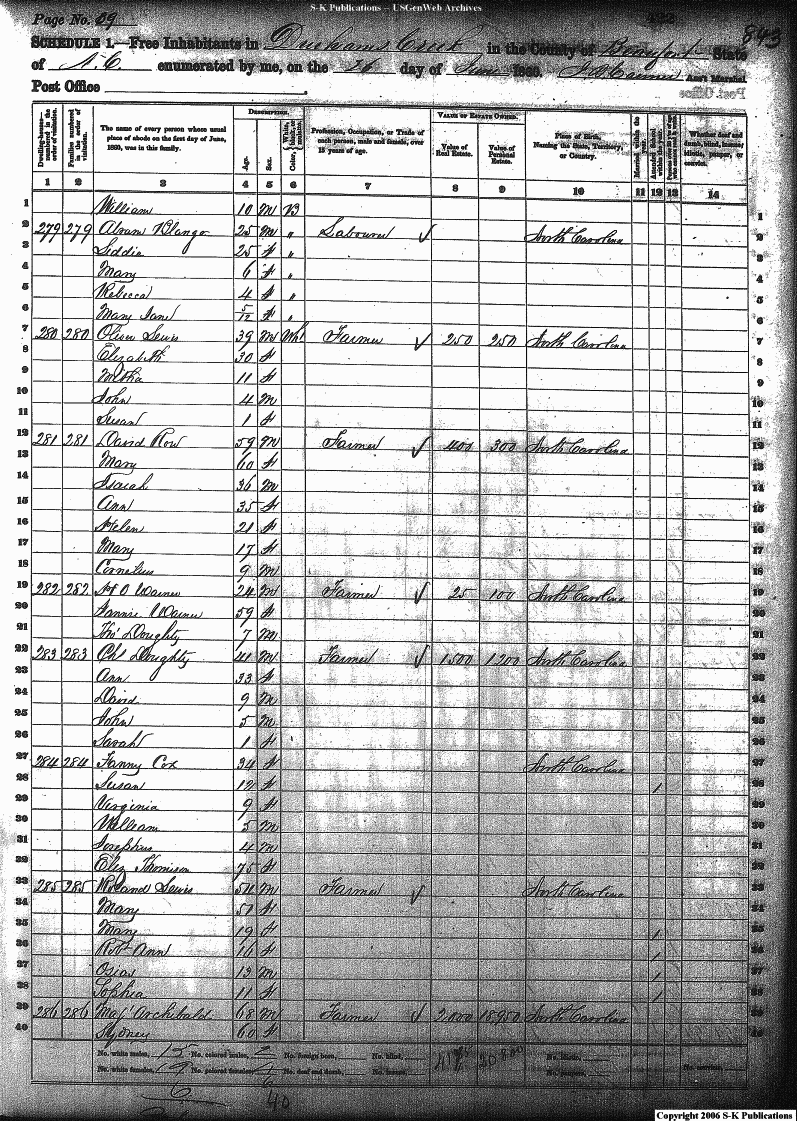 S-K Publications – USGenWeb Archives
Page No. 69
843
SCHEDULE 1.—Free Inhabitants in Durhams Creek in the County of Beaufort State
of N. C. enumerated by me, on the 26 day of June 1860. Ass't Marshal
Post Office
Dwelling-houses—numbered in the order of visitation.
Families numbered in the order of visitation.
The name of every person whose usual place of abode on the first day of June, 1860, was in this family.
DESCRIPTION.
Age.
Sex.
Color, White, black, or mulatto.
Profession, Occupation, or Trade of each person, male and female, over 15 years of age.
VALUE OF ESTATE OWNED.
Value of Real Estate.
Value of Personal Estate.
Place of Birth, Naming the State, Territory, or Country.
Married within the year.
Attended School within the year.
Persons over 20 y'rs of age who cannot read & write.
Whether deaf and dumb, blind, insane, idiotic, pauper, or convict.
1 2 3 4 5 6 7 8 9 10 11 12 13 14
1 William 10 m B 1
2 279 279 Abram Blango 25 m " Labourer North Carolina 2
3 Liddia 25 f " 3
4 Mary 6 f " 4
5 Rebecca 4 f " 5
6 Mary Jane 5/12 f " 6
7 280 280 Oliver Lewis 39 m Wht Farmer 250 250 North Carolina 7
8 Elizabeth 30 f 8
9 11 f 9
10 John 4 m 10
11 Susan 1 f 11
12 281 281 David Row 59 m Farmer 400 300 North Carolina 12
13 Mary 60 f 13
14 Isaiah 36 m 14
15 Ann 35 f 15
16 Helen 21 f 16
17 Mary 17 f 17
18 Cornelius 9 m 18
19 282 282 24 m Farmer 25 100 North Carolina 19
20 59 f 20
21 Doughty 7 m 21
22 283 283 Doughty 41 m Farmer 1500 1200 North Carolina 22
23 Ann 33 f 23
24 David 9 m 24
25 John 5 m 25
26 Sarah 1 f 26
27 284 284 Fanny Cox 34 f North Carolina 27
28 Susan 12 f 1 28
29 Virginia 9 f 29
30 William 5 m 30
31 Josephus 4 m 31
32 Eliz Thomison 75 f 32
33 285 285 Roland Lewis 54 m Farmer North Carolina 33
34 Mary 51 f 34
35 Mary 19 f 1 35
36 Ann 16 f 1 36
37 13 m 1 37
38 Sophia 11 f 1 38
39 286 286 Archibald 68 m Farmer 2,000 18950 North Carolina 39
40 Sydney 60 f 40
No. white males, 15 No. colored males, 2 No. foreign born, No. blind, No. idiotic, No. convicts,
No. white females, 19 No. colored females, 4 No. deaf and dumb, No. insane, No. paupers,
6 6
40
Copyright 2006 S-K Publications